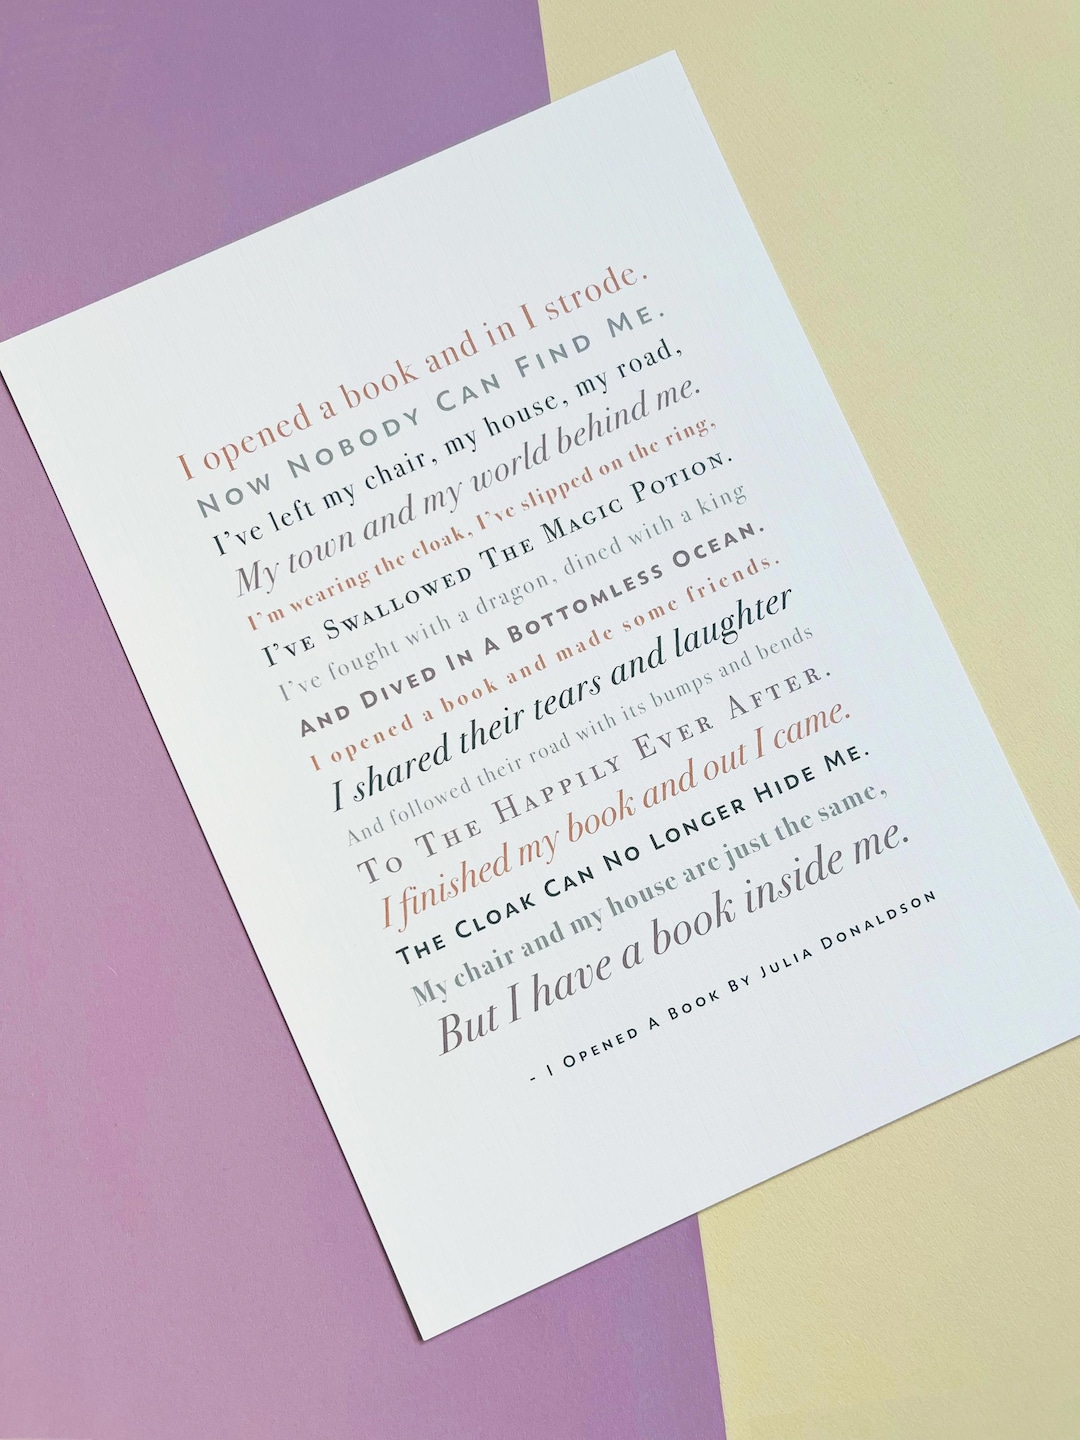 I opened a book and in I strode.
NOW NOBODY CAN FIND ME.
I've left my chair, my house, my road,
My town and my world behind me.
I'm wearing the cloak, I've slipped on the ring,
I'VE SWALLOWED THE MAGIC POTION.
I've fought with a dragon, dined with a king
AND DIVED IN A BOTTOMLESS OCEAN.
I opened a book and made some friends.
I shared their tears and laughter
And followed their road with its bumps and bends
TO THE HAPPILY EVER AFTER.
I finished my book and out I came.
THE CLOAK CAN NO LONGER HIDE ME.
My chair and my house are just the same,
But I have a book inside me.
- I OPENED A BOOK BY JULIA DONALDSON